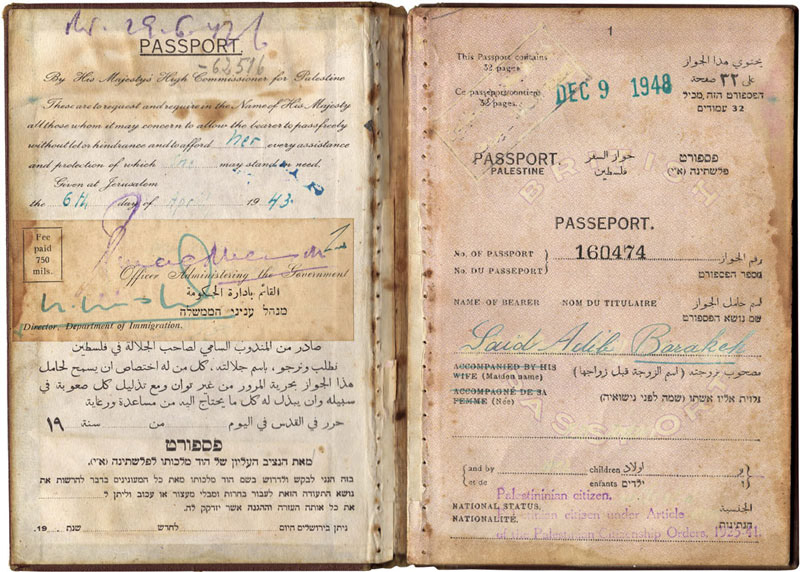 29.6.42
PASSPORT.
-62516
By His Majesty's High Commissioner for Palestine
These are to request and require in the Name of His Majesty
all those whom it may concern to allow the bearer to pass freely
without let or hindrance and to afford her every assistance
and protection of which may stand in need.
Given at Jerusalem
the 6th day of Apr 1943.
Fee
paid
750
mils.
Officer Administering the Government
القائم بادارة الحكومة
מנהל עניני הממשלה
Director, Department of Immigration.
صادر من المندوب السامي لصاحب الجلالة في فلسطين
نطلب ونرجو، باسم جلالته، كل من له اختصاص ان يسمح لحامل
هذا الجواز بحرية المرور من غير توان ومع تذليل كل صعوبة في
سبيله وان يبذل له كل ما يحتاج اليه من مساعدة ورعاية
حرر في القدس في اليوم من سنة ١٩
פספורט
מאת הנציב העליון של הוד מלכותו לפלשתינה (א״י).
בזה הנני לבקש ולדרוש בשם הוד מלכותו של כל המעונינים בדבר להרשות את
נושא התעודה הזאת לעבור בחרות ומבלי מעצור או עכוב וליתן ל
את כל אותה העזרה וההגנה אשר יזדקק לה.
ניתן בירושלים היום לחדש שנת 19
1
This Passport contains
32 pages
يحتوي هذا الجواز
على ٣٢ صفحة
Ce passeport contient
32 pages.
הפספורט הזה, מכיל
32 עמודים
DEC 9 1948
PASSPORT.
PALESTINE
جواز السفر
فلسطين
פספורט
פלשתינה (א״י)
BRITISH
PASSEPORT.
No. OF PASSPORT
No. DU PASSEPORT
160474
رقم الجواز
מספר הפספורט
NAME OF BEARER NOM DU TITULAIRE
اسم حامل الجواز
שם נושא הפספורט
Said Adib Barakeh
ACCOMPANIED BY HIS
WIFE (Maiden name)
مصحوب بزوجته (اسم الزوجة قبل زواجها)
ACCOMPAGNÉ DE SA
FEMME (Née)
נלוית אליו אשתו (שמה לפני נישואיה)
PASSPORT
and by children و اولاد
et de enfants ו ילדים
Palestininian citizen.
NATIONAL STATUS. الجنسية
citizen under Article
NATIONALITÉ. הנתינות
of the Palestinian Citizenship Orders, 1925-41.